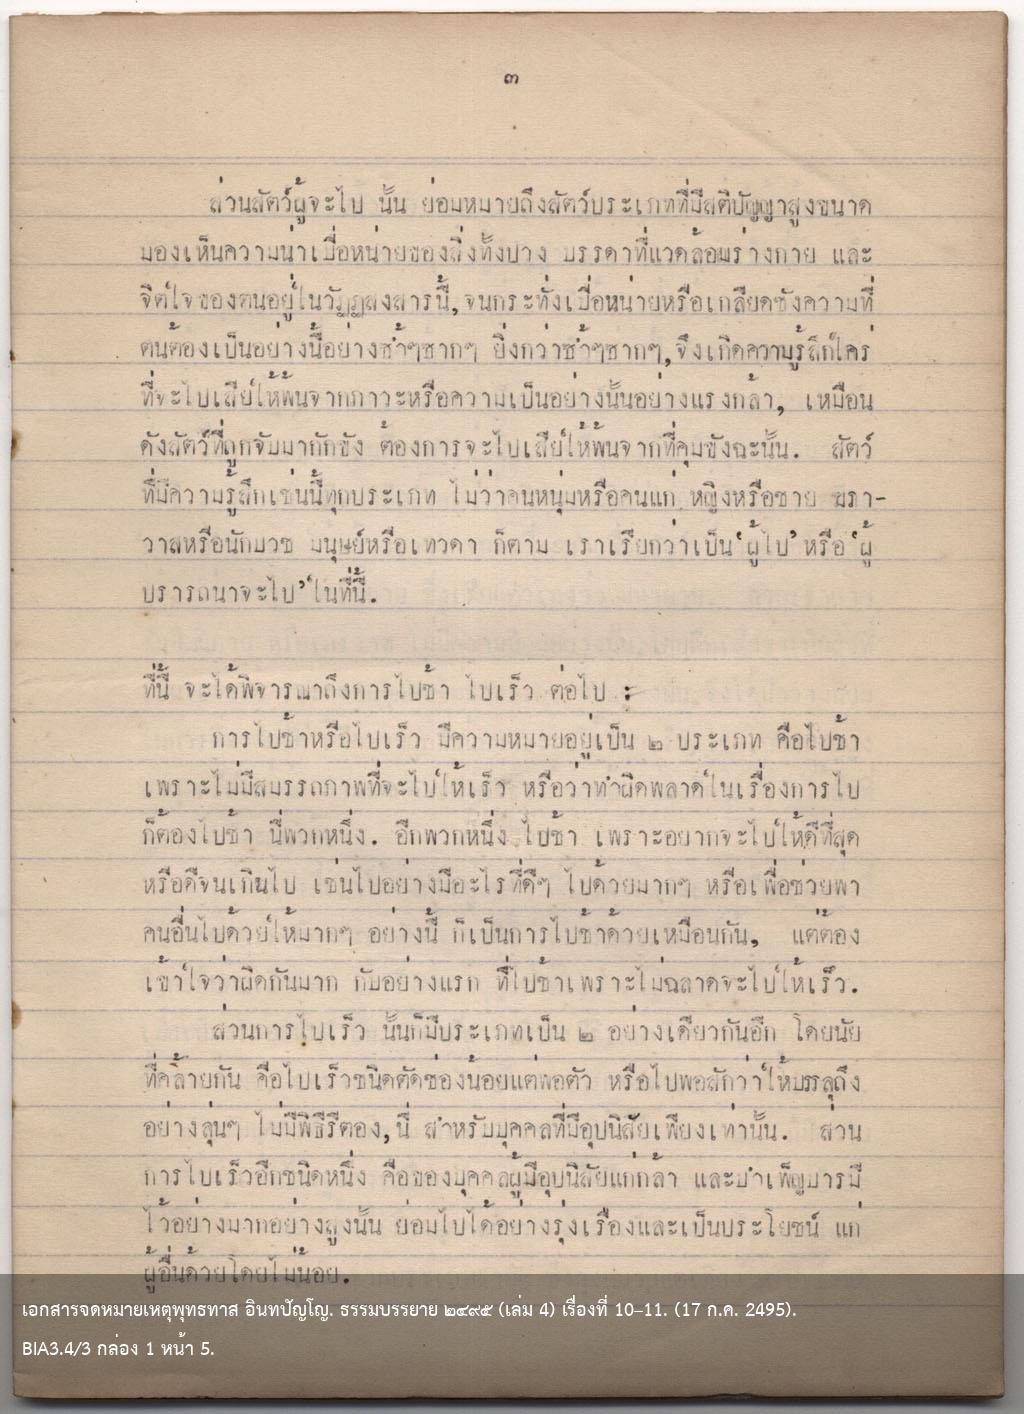 ๓
ส่วนสัตว์ผู้จะไป นั้น ย่อมหมายถึงสัตว์ประเภทที่มีสติปัญญาสูงขนาด
มองเห็นความน่าเบื่อหน่ายของสิ่งทั้งปวง บรรดาที่แวดล้อมร่างกาย และ
จิตใจของตนอยู่ในวัฏฏสงสารนี้, จนกระทั่งเบื่อหน่ายหรือเกลียดชังความที่
ตนต้องเป็นอย่างนี้อย่างซ้ำๆซากๆ ยิ่งกว่าซ้ำๆซากๆ, จึงเกิดความรู้สึกใคร่
ที่จะไปเสียให้พ้นจากภาวะหรือความเป็นอย่างนั้นอย่างแรงกล้า, เหมือน
ดังสัตว์ที่ถูกจับมากักขัง ต้องการจะไปเสียให้พ้นจากที่คุมขังฉะนั้น. สัตว์
ที่มีความรู้สึกเช่นนี้ทุกประเภท ไม่ว่าคนหนุ่มหรือคนแก่ หญิงหรือชาย ฆรา-
วาสหรือนักบวช มนุษย์หรือเทวดา ก็ตาม เราเรียกว่าเป็น 'ผู้ไป' หรือ 'ผู้
ปรารถนาจะไป' ในที่นี้.
ที่นี้ จะได้พิจารณาถึงการไปช้า ไปเร็ว ต่อไป :
การไปช้าหรือไปเร็ว มีความหมายอยู่เป็น ๒ ประเภท คือไปช้า
เพราะไม่มีสมรรถภาพที่จะไปให้เร็ว หรือว่าทำผิดพลาดในเรื่องการไป
ก็ต้องไปช้า นี่พวกหนึ่ง. อีกพวกหนึ่ง ไปช้า เพราะอยากจะไปให้ดีที่สุด
หรือดีจนเกินไป เช่นไปอย่างมีอะไรที่ดีๆ ไปด้วยมากๆ หรือเพื่อช่วยพา
คนอื่นไปด้วยให้มากๆ อย่างนี้ ก็เป็นการไปช้าด้วยเหมือนกัน, แต่ต้อง
เข้าใจว่าผิดกันมาก กับอย่างแรก ที่ไปช้าเพราะไม่ฉลาดจะไปให้เร็ว.
ส่วนการไปเร็ว นั้นก็มีประเภทเป็น ๒ อย่างเดียวกันอีก โดยนัย
ที่คล้ายกัน คือไปเร็วชนิดตัดช่องน้อยแต่พอตัว หรือไปพอสักว่าให้บรรลุถึง
อย่างลุ่นๆ ไม่มีพิธีรีตอง, นี่ สำหรับบุคคลที่มีอุปนิสัยเพียงเท่านั้น. ส่วน
การไปเร็วอีกชนิดหนึ่ง คือของบุคคลผู้มีอุปนิสัยแก่กล้า และบำเพ็ญบารมี
ไว้อย่างมากอย่างสูงนั้น ย่อมไปได้อย่างรุ่งเรืองและเป็นประโยชน์ แก่
ผู้อื่นด้วยโดยไม่น้อย.
เอกสารจดหมายเหตุพุทธทาส อินทปัญโญ. ธรรมบรรยาย ๒๔๙๕ (เล่ม 4) เรื่องที่ 10–11. (17 ก.ค. 2495).
BIA3.4/3 กล่อง 1 หน้า 5.